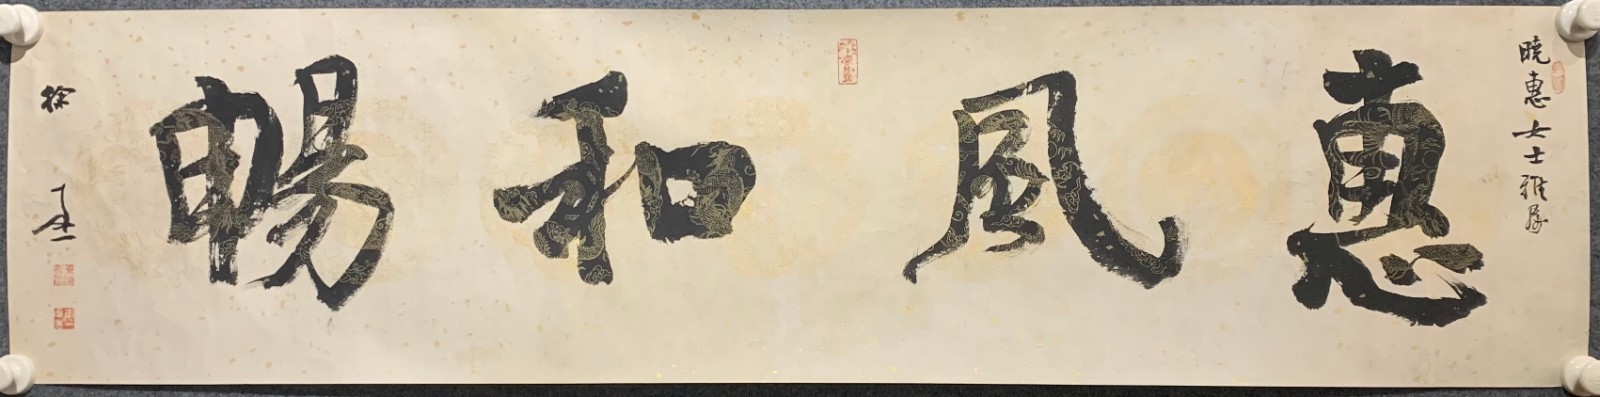 曉惠女士雅屬
惠風和暢
徐